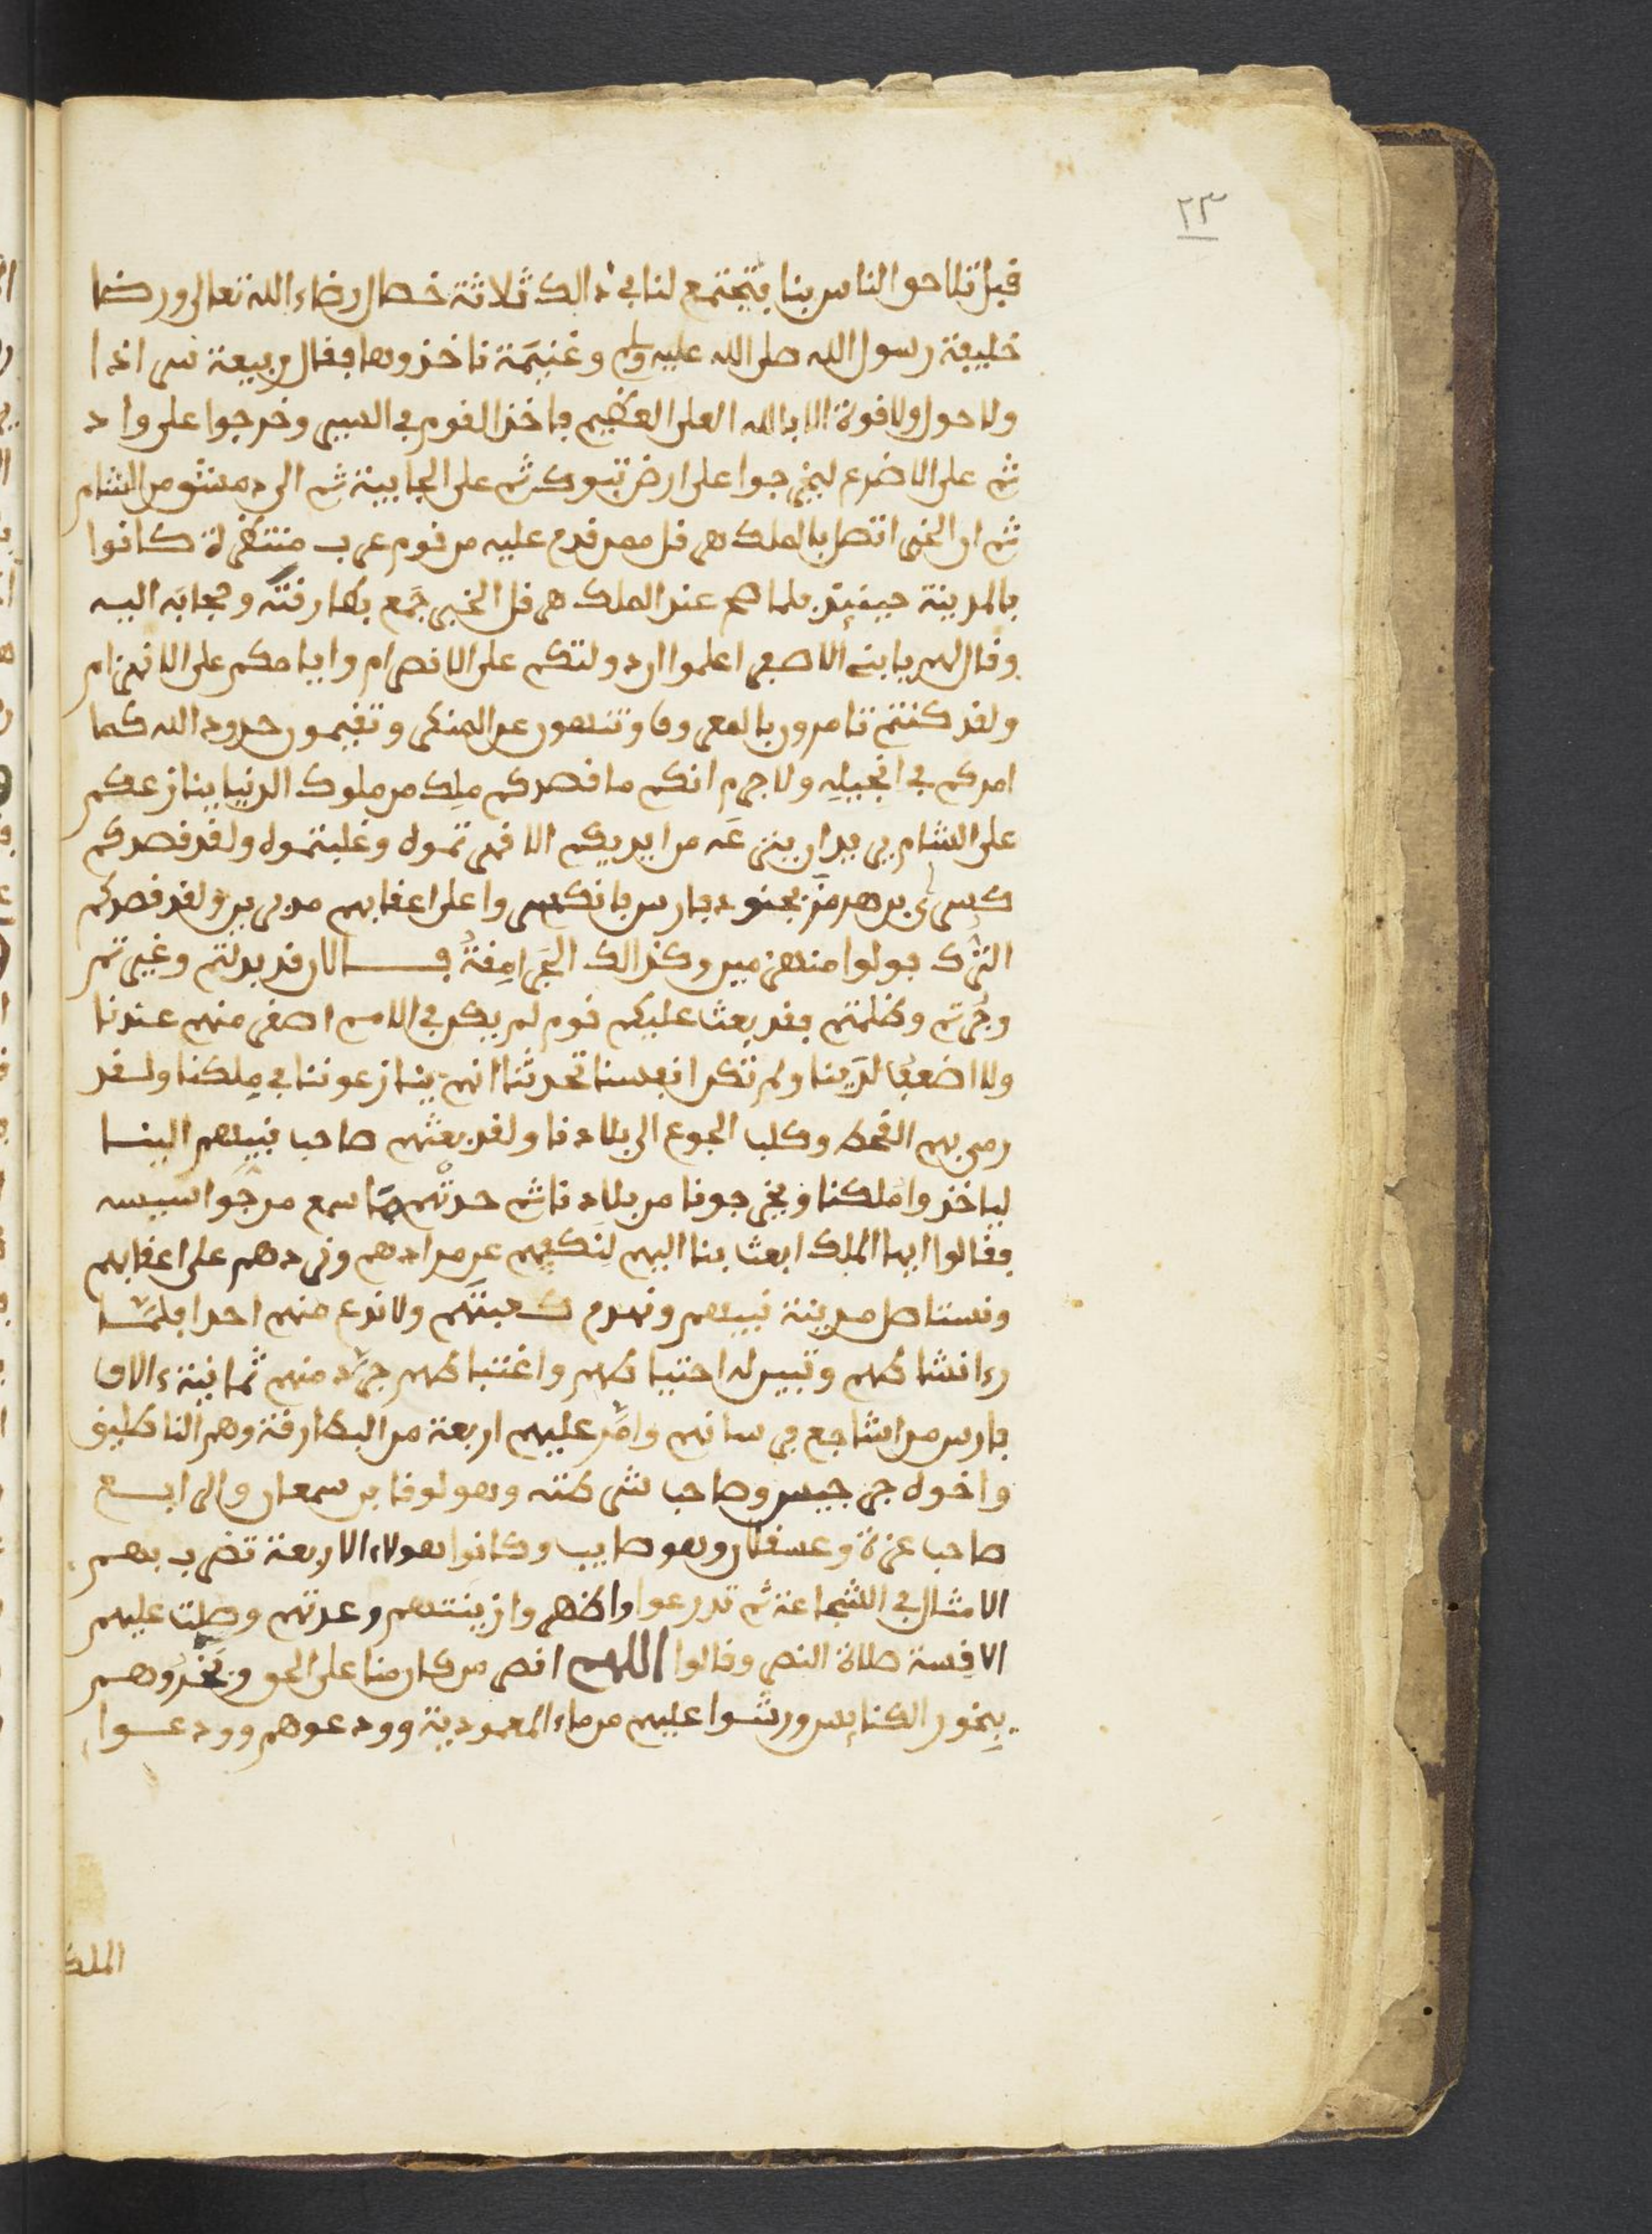 ٢٣
قبل تلاحق الناس بنا فتجتمع لنا في ذالك ثلاثة خصال رضاء الله تعالى ورضا
خليفة رسول الله صلى الله عليه وسلم وغنيمة ناخذونها فقال ربيعة سر اذا
ولا حول ولا قوة الا بالله العلي العظيم فاخذ القوم في السير وخرجوا على واد
ثم على الاضرع ليخرجوا على ارض تبوك ثم على الجابية ثم الى دمشق من الشام
ثم ان الخبر اتصل بالملك هرقل ممن قدم عليه من قوم عرب متنصرة كانوا
بالمدينة حينيذ فلما صح عند الملك هرقل الخبر جمع بطارقته وحجابه اليه
وقال لهم يا بني الاصفر اعلموا ان دولتكم على الانصرام وايامكم على الانهزام
ولقد كنتم تامرون بالمعروف وتنهون عن المنكر وتقيمون حدود الله كما
امركم في انجيله ولا جرم انكم ما قصدكم ملك من ملوك الدنيا ينازعكم
على الشام يريد ان ينزعه من ايديكم الا قهرتموه وغلبتموه ولقد قصدكم
كسرى بن هرمز بجنود فارس فانكسروا على اعقابهم مدبرين ولقد قصدكم
الترك فولوا منهزمين وكذالك الجرامقة فالان قد بدلتم وغيرتم
وجرتم وظلمتم فقد بعث عليكم قوم لم يكن في الامم اصغر منهم عندنا
ولا اضعف لدينا ولم تكن انفسنا تحدثنا انهم ينازعوننا في ملكنا ولقد
رمى بهم القحط وكلب الجوع الى بلادنا ولقد بعثهم صاحب نبيهم الينا
لياخذوا ملكنا ويخرجونا من بلادنا ثم حدثهم بما سمع من جواسيسه
فقالوا ايها الملك ابعث بنا اليهم لنكفهم عن مرادهم ونردهم على اعقابهم
ونستاصل مدينة نبيهم ونهدم كعبتهم ولا ندع منهم احدا فلما
رءا نشاطهم وتبين له احتياطهم واغتباطهم جرد منهم ثمانية ءالاف
فارس من اشاجع فرسانهم وامر عليهم اربعة من البطارقة وهم الناطليق
واخوه جرجيس وصاحب شرطته وهو لوقا بن سمعان والرابع
صاحب غزة وعسقلان وهو صليب وكانوا هولاء الاربعة تضرب بهم
الامثال في الشجاعة ثم تدرعوا واظهروا زينتهم وعدتهم وصلت عليهم
الاقسة صلاة النصر وقالوا اللهم انصر من كان منا على الحق وبخروهم
ببخور الكنايس ورشوا عليهم من ماء المعمودية وودعوهم وودعوا
الملك